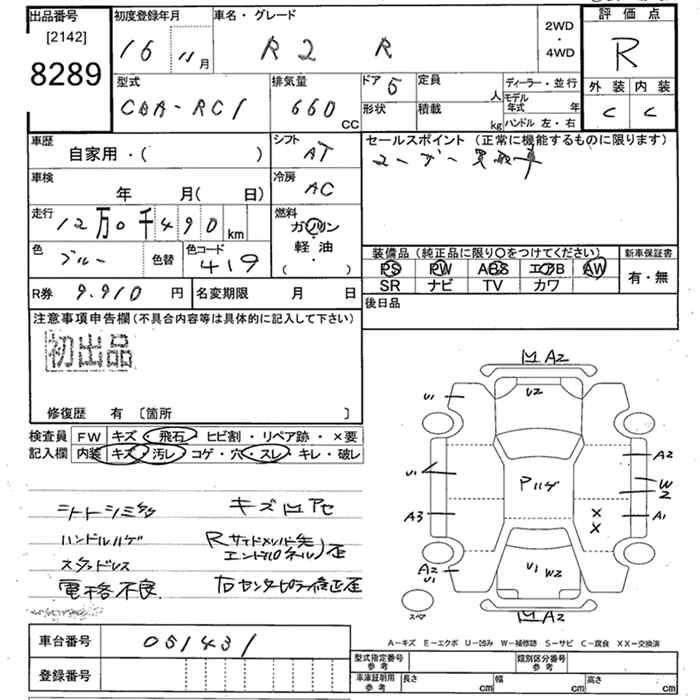 出品番号
[2142]
8289
初度登録年月
16 11月
車名・グレード
R2 R
2WD
・
4WD
評価点
R
外装 内装
C C
型式
CBA-RC1
排気量
660 CC
ドア 5
形状
定員 人
積載 kg
ディーラー・並行
モデル年式 年
ハンドル 左・右
車歴
自家用・( )
シフト
AT
車検
年 月( 日)
冷房
AC
走行
12万0千490km
燃料
ガソリン
軽・油
( )
色
ブルー
色替
色コード
419
R券 9.910円
名変期限 月 日
セールスポイント(正常に機能するものに限ります)
ユーザー買取車
装備品(純正品に限り〇をつけてください)
PS PW ABS エアB AW
SR ナビ TV カワ
新車保証書
有・無
後日品
注意事項申告欄(不具合内容等は具体的に記入して下さい)
初出品
修復歴 有〔箇所 〕
検査員
記入欄
FW キズ・飛石・ヒビ割・リペア跡・×要
内装 キズ・汚レ・コゲ・穴・スレ・キレ・破レ
シートシミ
キズ凹アセ
ハンドルハゲ
Rサイドメンバー先
エンドパネル
歪
スタッドレス
電格不良
右センターピラー修正歪
凹A2
U1
U2
A2
U1
Pハゲ
W2
A3
×
×
A1
A2
U1
U1 W2
スペア
凹A2
A-キズ E-エクボ U-凹み W-補修跡 S-サビ C-腐食 XX-交換済
車台番号
051431
登録番号
型式指定番号
参考
類別区分番号
参考
車庫証明用
参考
長さ cm
幅 cm
高さ cm